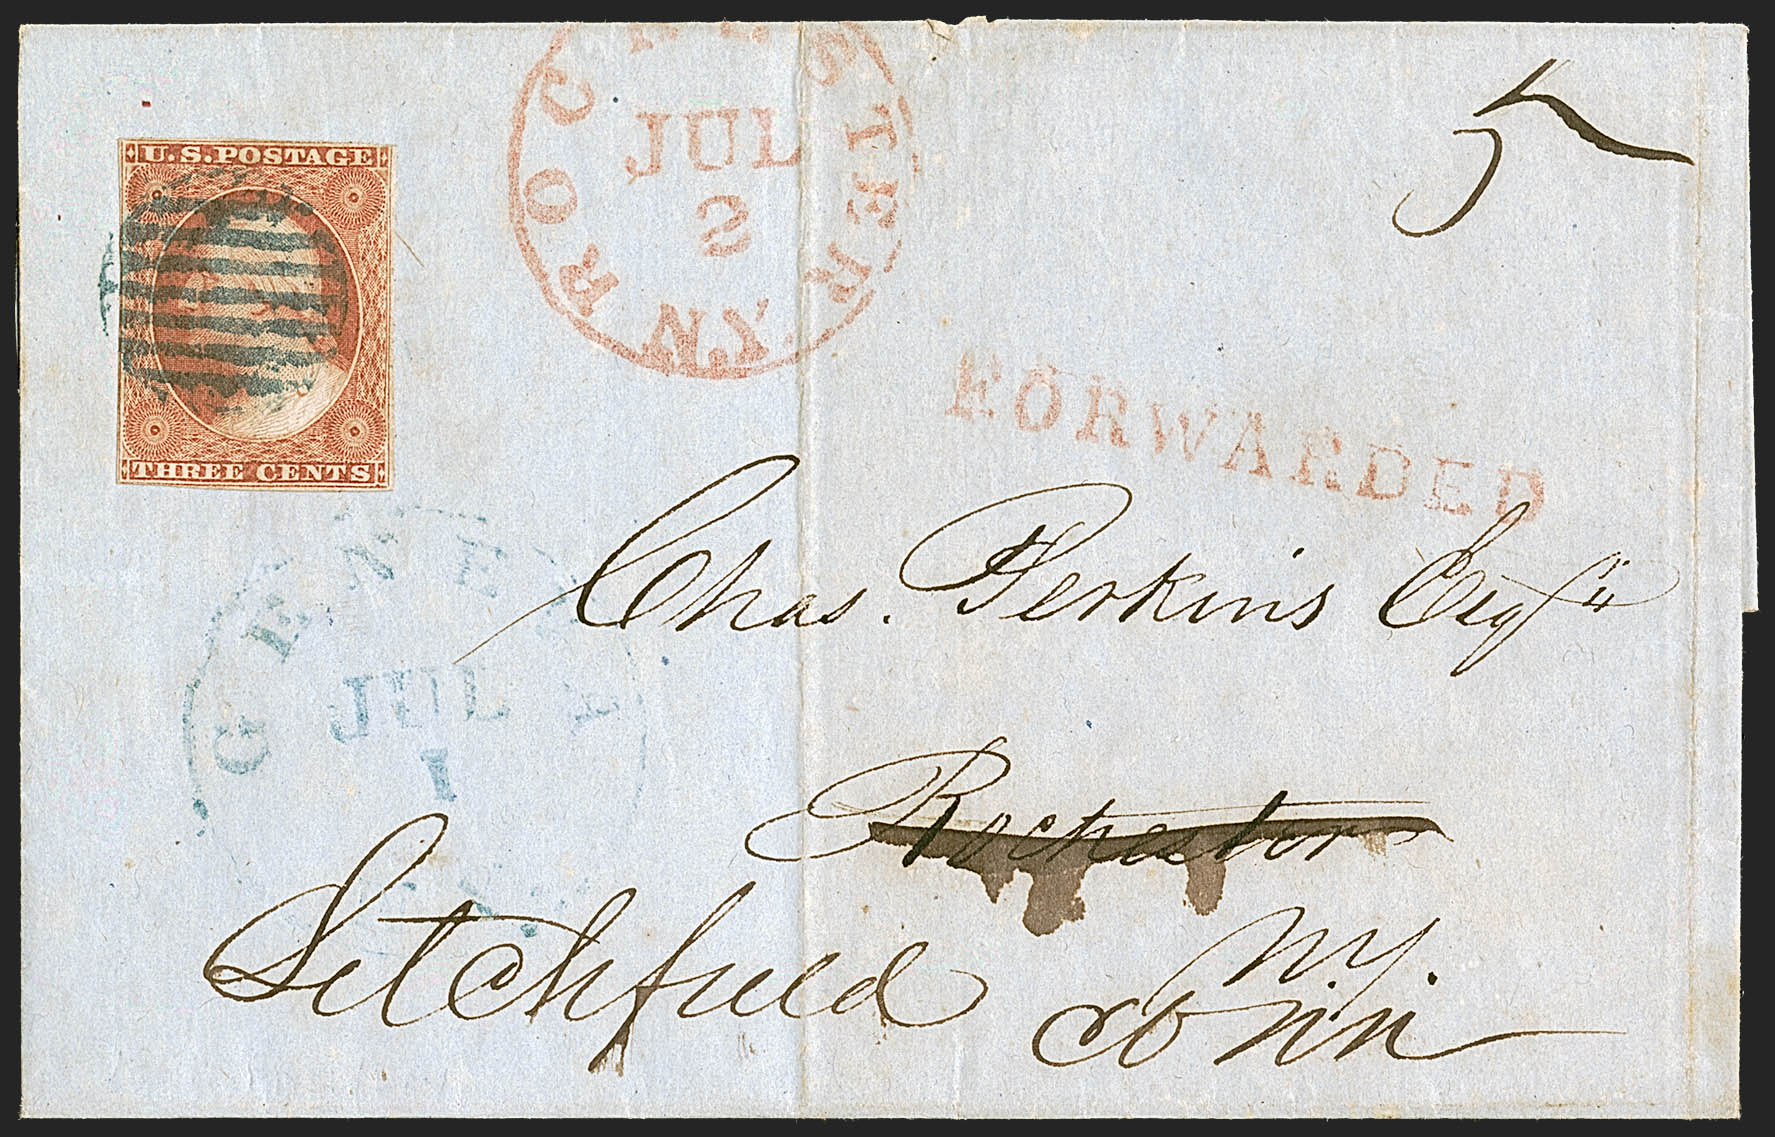 U.S. POSTAGE
THREE CENTS
ROCHESTER N.Y.
JUL
2
5
FORWARDED
GENEVA
JUL
1
Chas. Perkins Esqr
Rochester
N.Y.
Litchfield
Conn